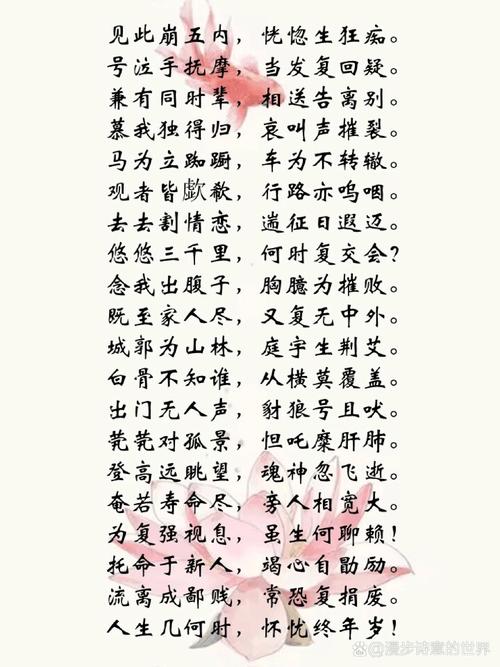 见此崩五内，恍惚生狂痴。
号泣手抚摩，当发复回疑。
兼有同时辈，相送告离别。
慕我独得归，哀叫声摧裂。
马为立踟蹰，车为不转辙。
观者皆歔欷，行路亦呜咽。
去去割情恋，遄征日遐迈。
悠悠三千里，何时复交会？
念我出腹子，胸臆为摧败。
既至家人尽，又复无中外。
城郭为山林，庭宇生荆艾。
白骨不知谁，从横莫覆盖。
出门无人声，豺狼号且吠。
茕茕对孤景，怛咤糜肝肺。
登高远眺望，魂神忽飞逝。
奄若寿命尽，旁人相宽大。
为复强视息，虽生何聊赖！
托命于新人，竭心自勖励。
流离成鄙贱，常恐复捐废。
人生几何时，怀忧终年岁！
@漫步诗意的世界